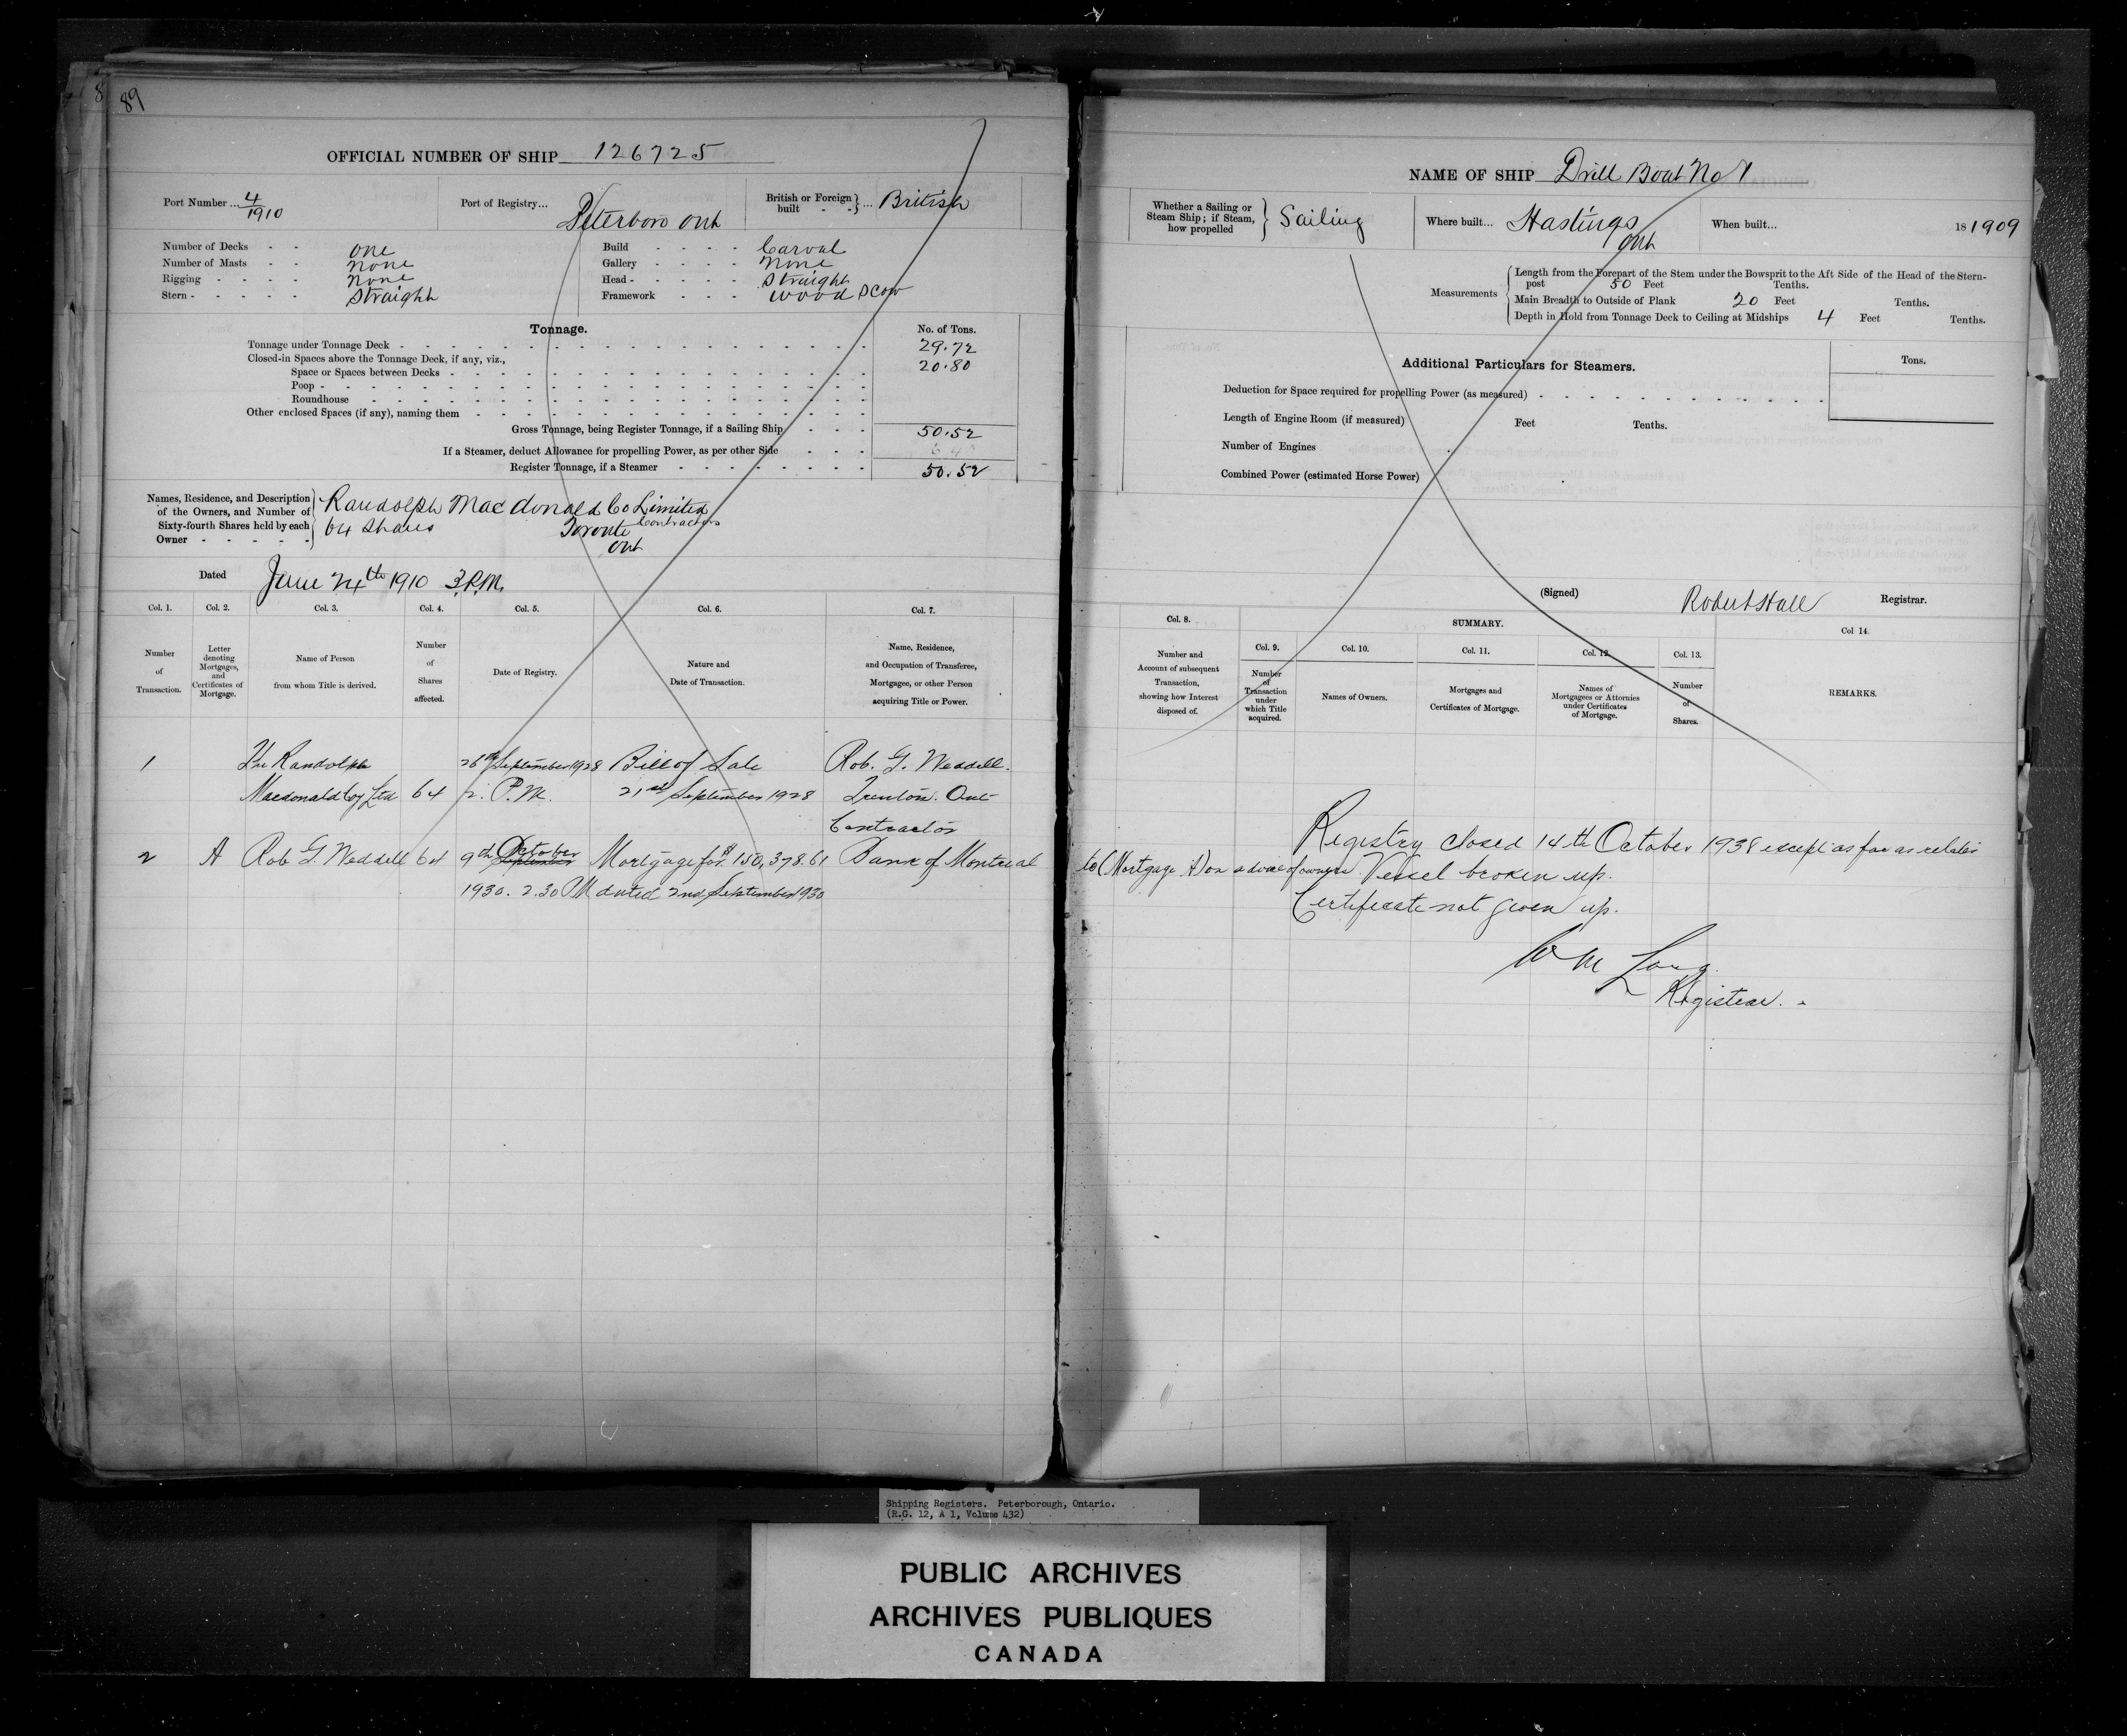 89
OFFICIAL NUMBER OF SHIP 126725
Port Number... 4/1910
Port of Registry... Peterboro Ont
British or Foreign built } ... British
Number of Decks - - one
Number of Masts - - none
Rigging - - - - none
Stern - - - - - Straight
Build - - - - Carval
Gallery - - - - none
Head - - - - - Straight
Framework - - - wood Scow
Tonnage. No. of Tons.
Tonnage under Tonnage Deck 29.72
Closed-in Spaces above the Tonnage Deck, if any, viz.,
Space or Spaces between Decks 20.80
Poop
Roundhouse
Other enclosed Spaces (if any), naming them
Gross Tonnage, being Register Tonnage, if a Sailing Ship 50.52
If a Steamer, deduct Allowance for propelling Power, as per other Side
Register Tonnage, if a Steamer 50.52
Names, Residence, and Description of the Owners, and Number of Sixty-fourth Shares held by each Owner
Randolph Macdonald Co Limited
64 Shares Toronto Contractors
Ont
Dated June 24th 1910 3.P.M.
Col. 1. Col. 2. Col. 3. Col. 4. Col. 5. Col. 6. Col. 7.
Number of Transaction.
Letter denoting Mortgages, and Certificates of Mortgage.
Name of Person from whom Title is derived.
Number of Shares affected.
Date of Registry.
Nature and Date of Transaction.
Name, Residence, and Occupation of Transferee, Mortgagee, or other Person acquiring Title or Power.
1 The Randolph 26th September 1928 Bill of Sale Rob. G. Weddell.
Macdonald Coy Ltd 64 2. P.M. 21st September 1928 Trenton. Ont
Contractor
2 A Rob G. Weddell 64 9th September October Mortgage for $150,378.61 Bank of Montreal
1930. 2.30 PM dated 2nd September 1930
NAME OF SHIP Drill Boat No 1
Whether a Sailing or Steam Ship; if Steam, how propelled } Sailing
Where built... Hastings Ont
When built... 18 1909
Measurements
Length from the Forepart of the Stem under the Bowsprit to the Aft Side of the Head of the Stern-
post 50 Feet Tenths.
Main Breadth to Outside of Plank 20 Feet Tenths.
Depth in Hold from Tonnage Deck to Ceiling at Midships 4 Feet Tenths.
Additional Particulars for Steamers. Tons.
Deduction for Space required for propelling Power (as measured)
Length of Engine Room (if measured) Feet Tenths.
Number of Engines
Combined Power (estimated Horse Power)
(Signed) Robert Hall Registrar.
Col. 8. SUMMARY. Col 14.
Col. 9. Col. 10. Col. 11. Col. 12. Col. 13.
Number and Account of subsequent Transaction, showing how Interest disposed of.
Number of Transaction under which Title acquired.
Names of Owners.
Mortgages and Certificates of Mortgage.
Names of Mortgagees or Attornies under Certificates of Mortgage.
Number of Shares.
REMARKS.
Registry closed 14th October 1938 except as far as relates
to (Mortgage A) on advice of owner. Vessel broken up.
Certificate not given up.
Wm Long
Registrar.
Shipping Registers. Peterborough, Ontario.
(R.G. 12, A 1, Volume 432)
PUBLIC ARCHIVES
ARCHIVES PUBLIQUES
CANADA